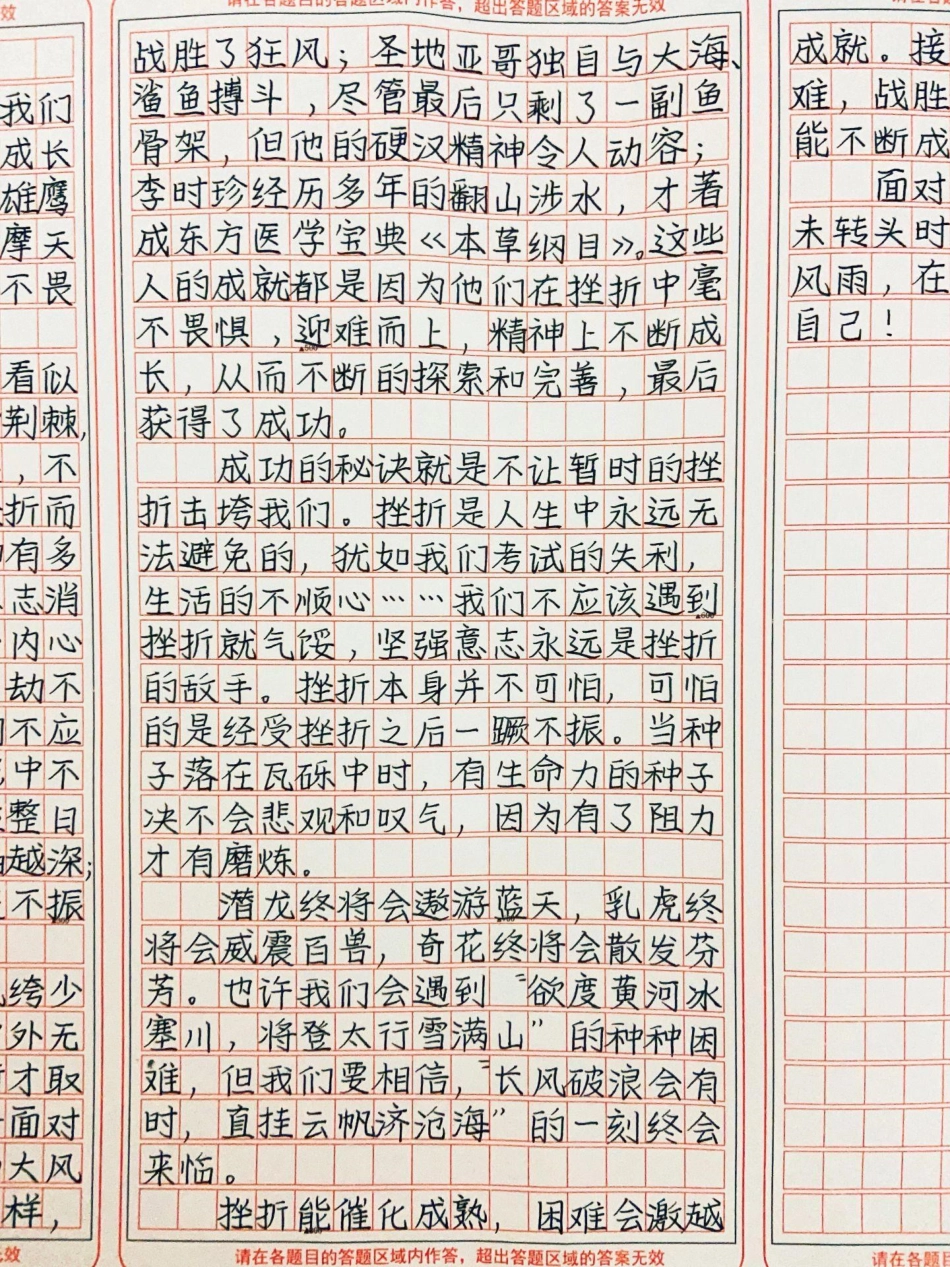 请在各题目的答题区域内作答，超出答题区域的答案无效
效
我们
成长
雄鹰
摩天
不畏
看似
荆棘，
，不
折而
有多
志消
内心
劫不
不应
中不
整日
越深；
不振
绔少
外无
才取
面对
大风
样，
无效
战胜了狂风；圣地亚哥独自与大海、
鲨鱼搏斗，尽管最后只剩了一副鱼
骨架，但他的硬汉精神令人动容；
李时珍经历多年的翻山涉水，才著
成东方医学宝典《本草纲目》。这些
人的成就都是因为他们在挫折中毫
不畏惧，迎难而上，精神上不断成
长，从而不断的探索和完善，最后
获得了成功。
成功的秘诀就是不让暂时的挫
折击垮我们。挫折是人生中永远无
法避免的，犹如我们考试的失利，
生活的不顺心……我们不应该遇到
挫折就气馁，坚强意志永远是挫折
的敌手。挫折本身并不可怕，可怕
的是经受挫折之后一蹶不振。当种
子落在瓦砾中时，有生命力的种子
决不会悲观和叹气，因为有了阻力
才有磨炼。
潜龙终将会遨游蓝天，乳虎终
将会威震百兽，奇花终将会散发芬
芳。也许我们会遇到“欲度黄河冰
塞川，将登太行雪满山”的种种困
难，但我们要相信，“长风破浪会有
时，直挂云帆济沧海”的一刻终会
来临。
挫折能催化成熟，困难会激越
请在各题目的答题区域内作答，超出答题区域的答案无效
成就。接
难，战胜
能不断成
面对
未转头时
风雨，在
自己！
请在各题目